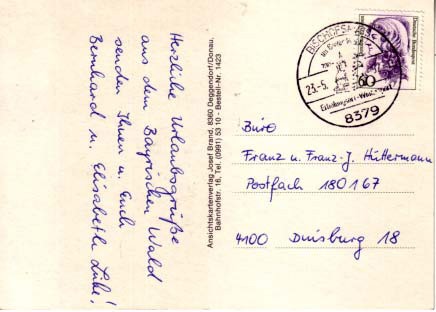 Herzliche Urlaubsgrüße
aus dem Bayrischen Wald
senden Ihnen u. Euch
Bernhard u. Elisabeth
Ansichtskartenverlag Josef Brand, 8360 Deggendorf/Donau,
Bahnhofstr. 16, Tel. (0991) 53 10 - Bestell-Nr. 1423
BISCHOFS
23.-5.
8379
60
Deutsche Bundespost
Büro
Franz u. Franz-J. Hüttermann
Postfach 180167
4100 Duisburg 18